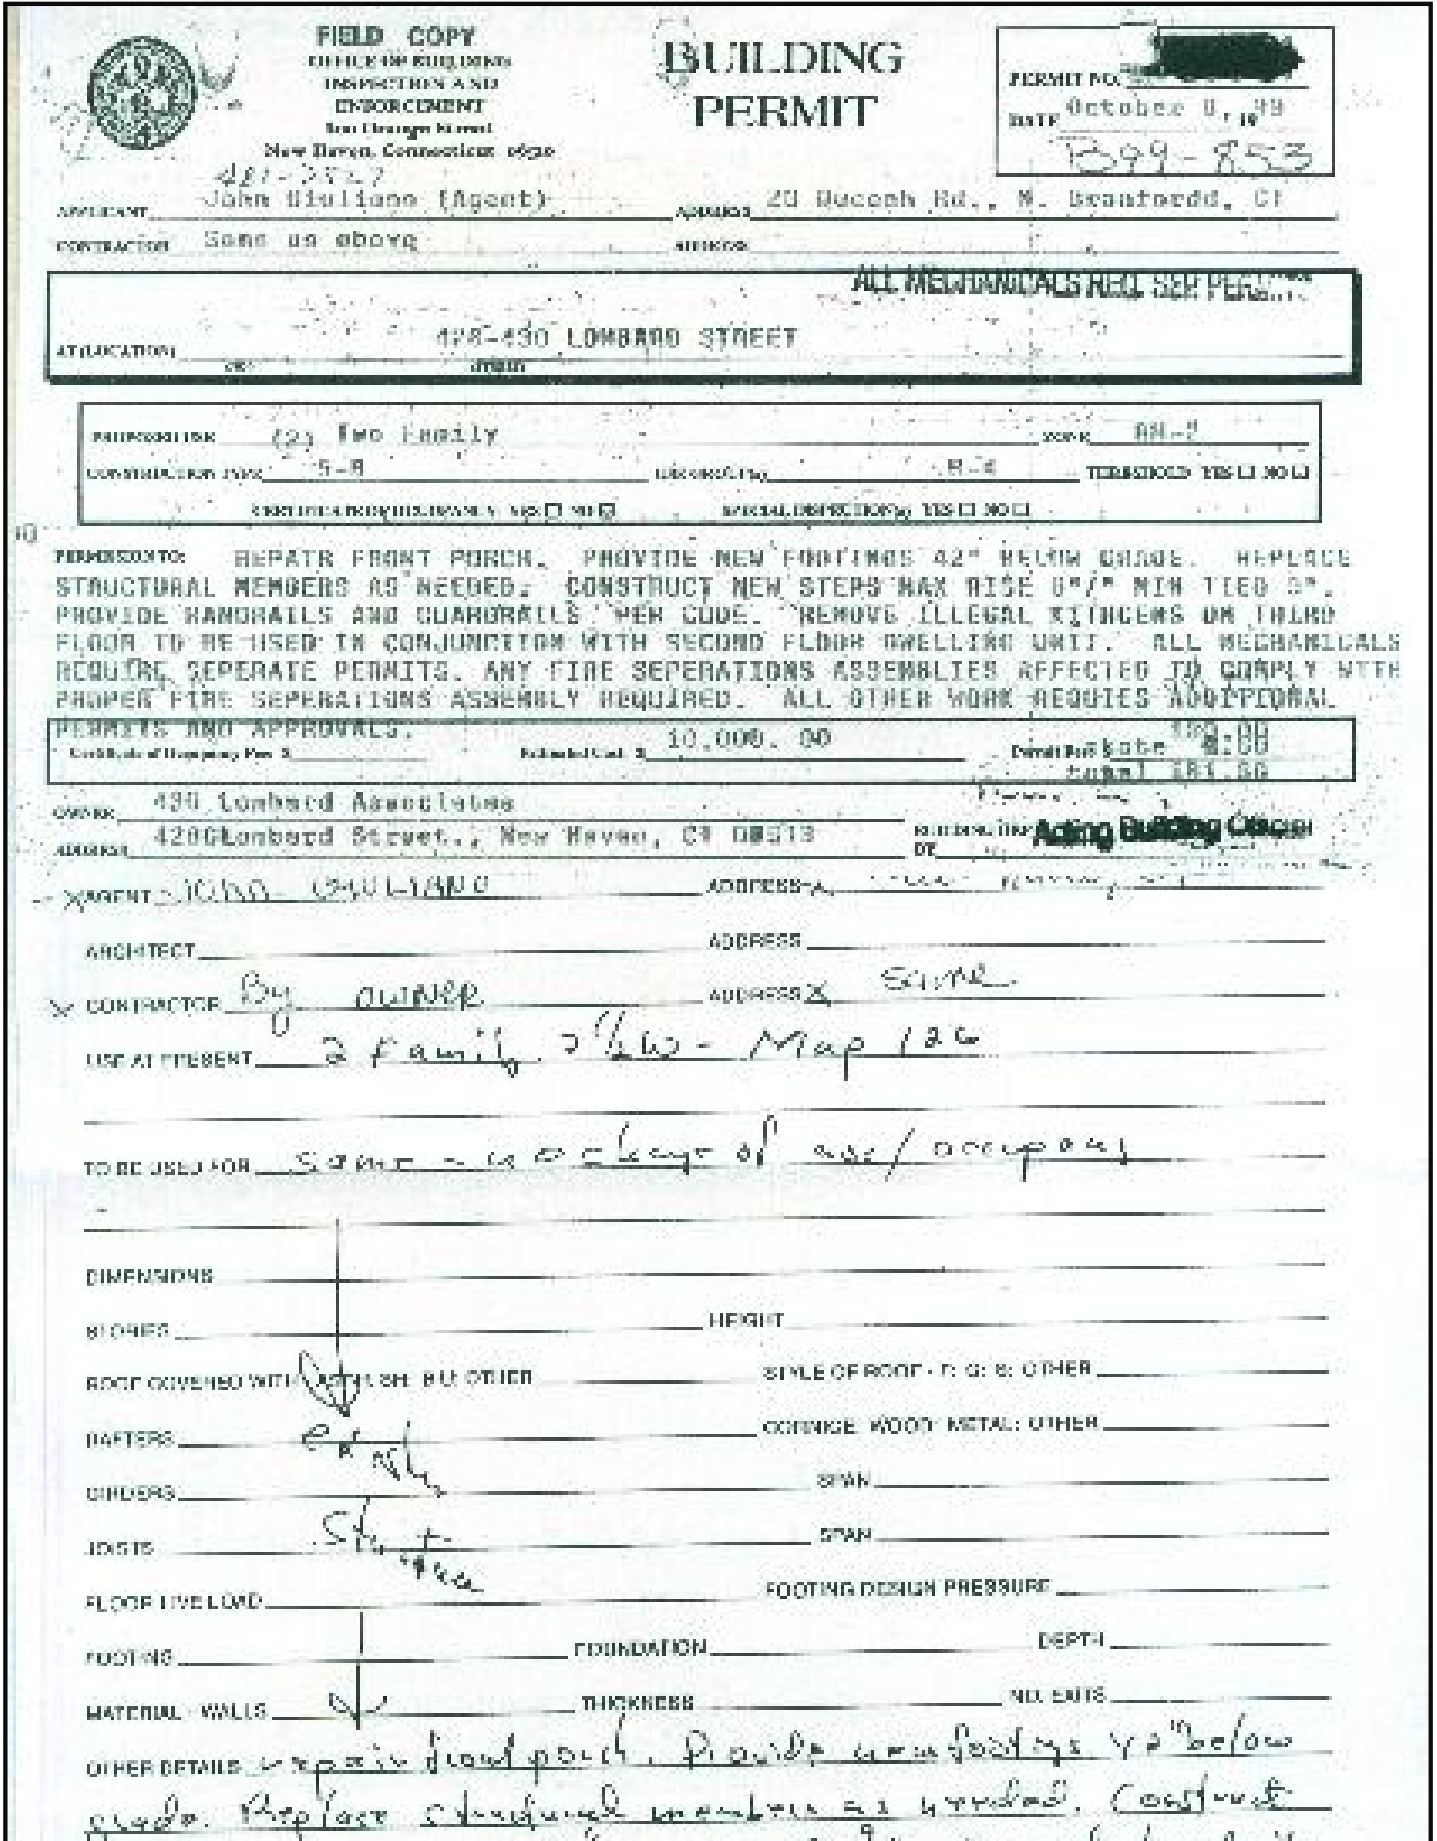 FIELD COPY
OFFICE OF BUILDING
INSPECTION AND
ENFORCEMENT
Orange Street
New Haven, Connecticut 06510
BUILDING
PERMIT
PERMIT NO.
DATE October 8, 19 99
B99-853
APPLICANT John Giuliano (Agent) ADDRESS 20 Rd., N. Branfordd, CT
CONTRACTOR Same as above ADDRESS
ALL MECHANICALS REQ. SEP PERMITS
AT (LOCATION) 428-430 LOMBARD STREET
NO. STREET
PROPOSED USE (2) Two Family ZONE RM-2
CONSTRUCTION TYPE 5-B R-4 THRESHOLD YES NO
CERTIFICATE OF OCCUPANCY YES NO SPECIAL INSPECTION YES NO
PERMISSION TO: REPAIR FRONT PORCH. PROVIDE NEW FOOTINGS 42" BELOW GRADE. REPLACE
STRUCTURAL MEMBERS AS NEEDED. CONSTRUCT NEW STEPS MAX RISE 8"/" MIN 9".
PROVIDE HANDRAILS AND GUARDRAILS PER CODE. REMOVE ILLEGAL KITHCENS ON THIRD
FLOOR TO BE USED IN CONJUNCTION WITH SECOND FLOOR DWELLING UNIT. ALL MECHANICALS
REQUIRE SEPERATE PERMITS. ANY FIRE SEPERATIONS ASSEMBLIES AFFECTED TO COMPLY WITH
PROPER FIRE SEPERATIONS ASSEMBLY REQUIRED. ALL OTHER WORK REQUIES ADDITIONAL
PERMITS AND APPROVALS.
Certificate of Occupancy Fee $ Estimated Cost $ 10,000.00 Permit Fee $ State
total
OWNER 430 Lombard Associates
ADDRESS Lombard Street., New Haven, CT 06513 BY Acting Building Official
X AGENT JOHN GIULIANO ADDRESS
ARCHITECT ADDRESS
X CONTRACTOR By OWNER ADDRESS X Same
USE AT PRESENT 2 Family 2 1/2 W - Map 126
TO BE USED FOR Same - no change of use/occupancy
DIMENSIONS
STORIES HEIGHT
ROOF COVERED WITH OTHER STYLE OF ROOF - F: G: S: OTHER
RAFTERS CORNICE: WOOD: METAL: OTHER
GIRDERS SPAN
JOISTS SPAN
FLOOR LIVE LOAD FOOTING DESIGN PRESSURE
FOOTING FOUNDATION DEPTH
MATERIAL - WALLS THICKNESS NO. EXITS
OTHER DETAILS repair front porch. Provide new footings 42" below
grade. Replace structural members as needed. Construct